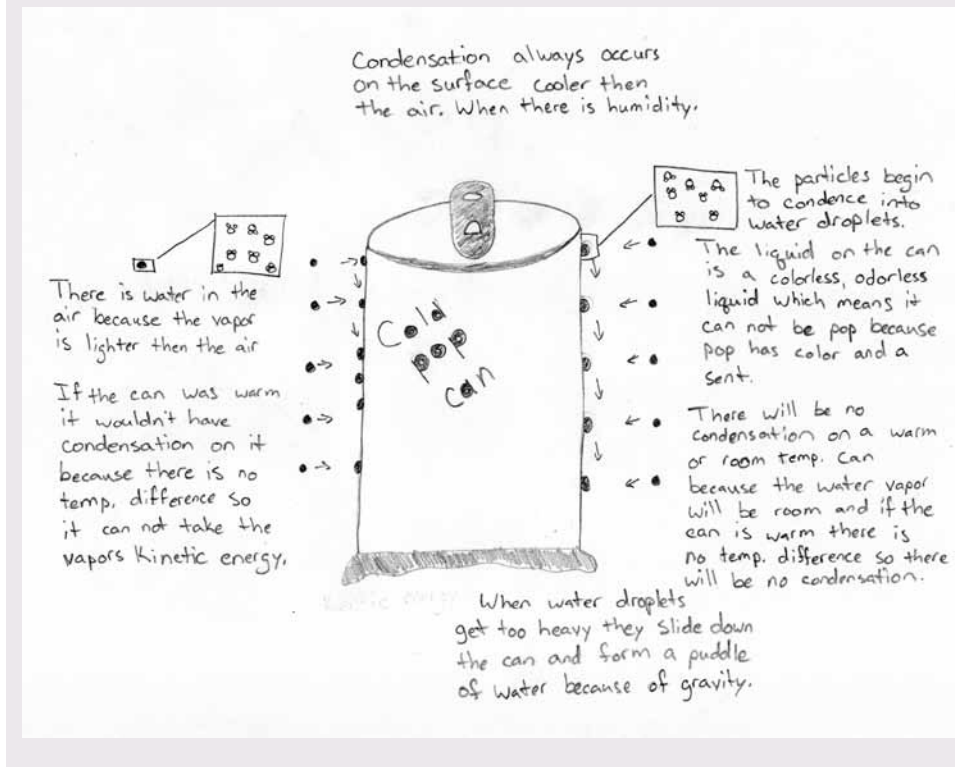 Condensation always occurs
on the surface cooler then
the air. When there is humidity.
There is water in the
air because the vapor
is lighter then the air
If the can was warm
it wouldn't have
condensation on it
because there is no
temp. difference so
it can not take the
vapors Kinetic energy.
Cold
pop
can
The particles begin
to condence into
water droplets.
The liquid on the can
is a colorless, odorless
liquid which means it
can not be pop because
pop has color and a
sent.
There will be no
condensation on a warm
or room temp. Can
because the water vapor
will be room and if the
can is warm there is
no temp. difference so there
will be no condensation.
When water droplets
get too heavy they slide down
the can and form a puddle
of water because of gravity.